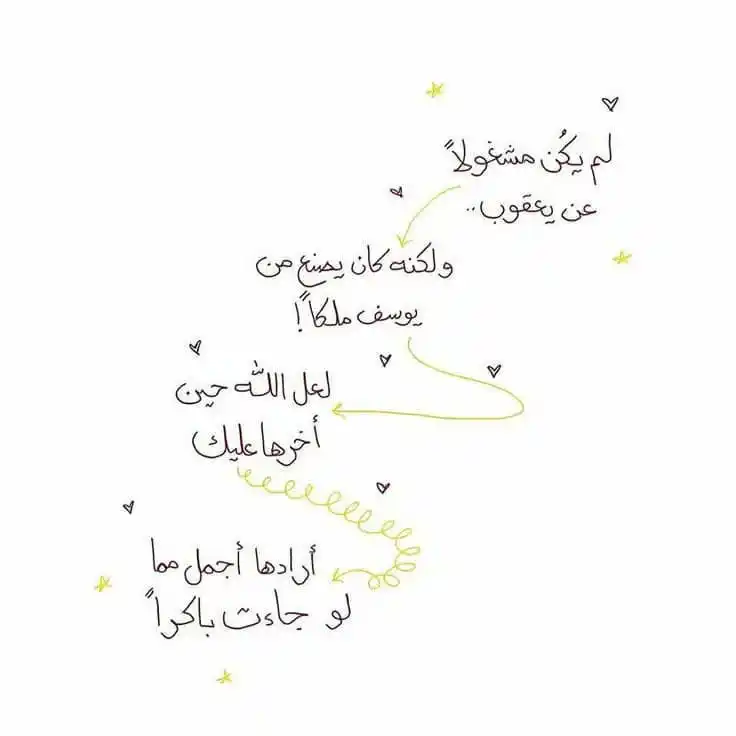 لم يكُن مشغولاً
عن يعقوب..
ولكنه كان يصنع من
يوسف ملكاً!
لعل الله حين
أخرها عليك
أرادها أجمل مما
لو جاءت باكراً